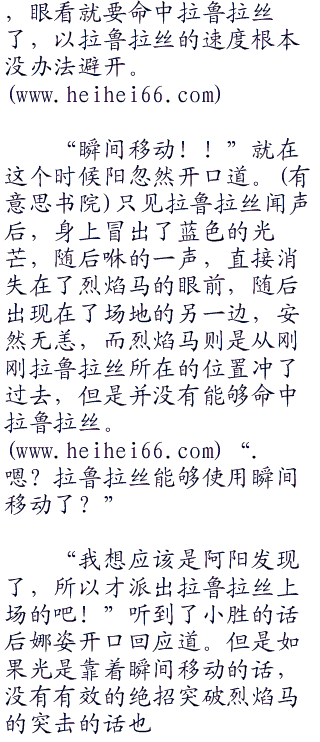 ，眼看就要命中拉鲁拉丝
了，以拉鲁拉丝的速度根本
没办法避开。
(www.heihei66.com)
“瞬间移动！！”就在
这个时候阳忽然开口道。(有
意思书院)只见拉鲁拉丝闻声
后，身上冒出了蓝色的光
芒，随后咻的一声，直接消
失在了烈焰马的眼前，随后
出现在了场地的另一边，安
然无恙，而烈焰马则是从刚
刚拉鲁拉丝所在的位置冲了
过去，但是并没有能够命中
拉鲁拉丝。
(www.heihei66.com)“.
嗯？拉鲁拉丝能够使用瞬间
移动了？”
“我想应该是阿阳发现
了，所以才派出拉鲁拉丝上
场的吧！”听到了小胜的话
后娜姿开口回应道。但是如
果光是靠着瞬间移动的话，
没有有效的绝招突破烈焰马
的突击的话也